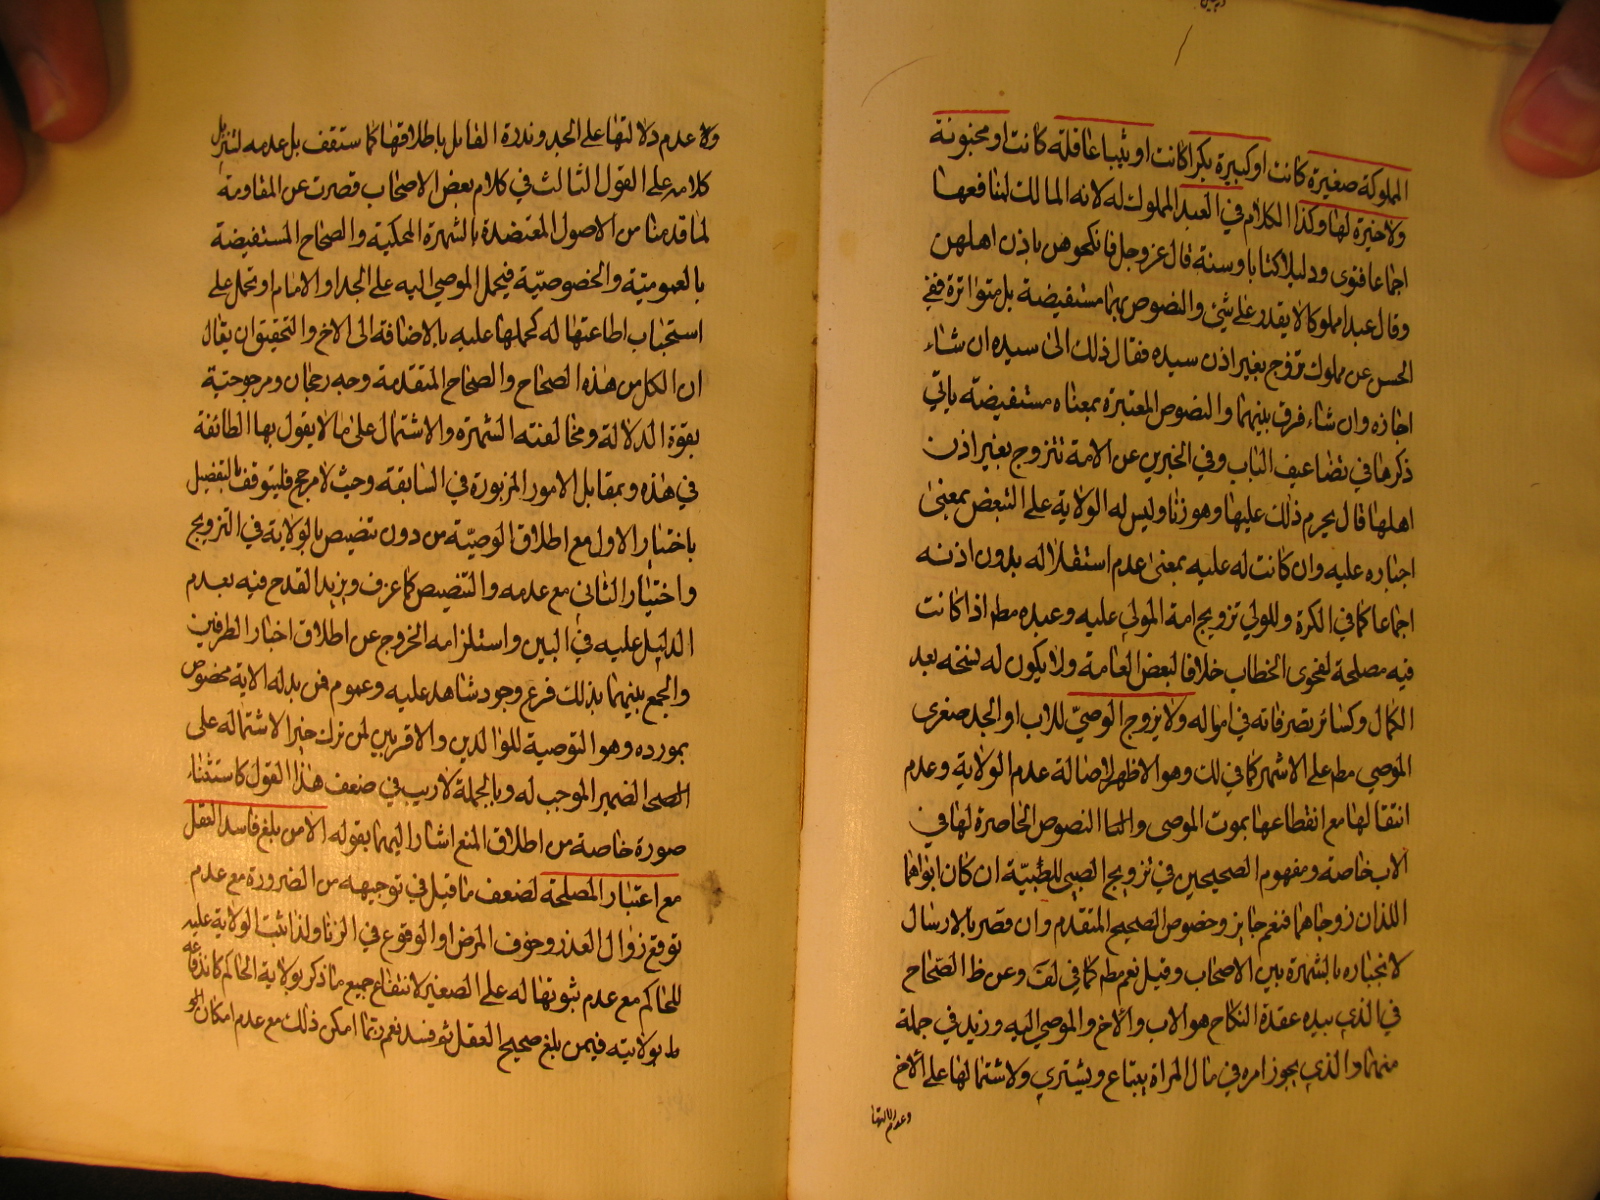 المملوكة صغيرة كانت او كبيرة بكرا كانت او ثيبا عاقلة كانت او مجنونة
ولا خيرة لها وكذا الكلام في العبد المملوك له لانه المالك لمنافعها
اجماعا فتوى ودليلا كتابا وسنة قال عز وجل فانكحوهن باذن اهلهن
وقال عبدا مملوكا لا يقدر على شئ والنصوص بهما مستفيضة بل متواترة ففي
الحسن عن مملوك تزوج بغير اذن سيده فقال ذلك الى سيده ان شاء
اجازه وان شاء فرق بينهما والنصوص المعتبرة بمعناه مستفيضة ياتي
ذكرها في تضاعيف الباب وفي الخبرين عن الامة تتزوج بغير اذن
اهلها قال يحرم ذلك عليها وهو زنا وليس له الولاية على التبعض بمعنى
اجباره عليه وان كانت له عليه بمعنى عدم استقلاله بدون اذنه
اجماعا كما في الكرة وللولي تزويج امة المولى عليه وعبده مط اذا كانت
فيه مصلحة لفحوى الخطاب خلافا لبعض العامة ولا يكون له فسخه بعد
الكمال وكسائر تصرفاته في امواله ولا يزوج الوصي للاب او الجد صغرى
الموصى مط على الاشهر كما في لك وهو الاظهر لاصالة عدم الولاية وعدم
انتقالها مع انقطاعها بموت الموصى والنصوص الحاصرة لها في
الاب خاصة ومفهوم الصحيحين في تزويج الصبي للصبية ان كان ابواهما
اللذان زوجاهما فنعم جايز وخصوص الصحيح المتقدم وان قصر بالارسال
لانجباره بالشهرة بين الاصحاب وقيل نعم مط كما في لف وعن ظ الصحاح
في الذي بيده عقدة النكاح هو الاب والاخ والموصى اليه وزيد في جملة
منهما والذي يجوز امره في مال المراة يبتاع ويشتري ولاشتمالها على الاخ
وعدم دلالتها
ولا عدم دلالتها على الجد وندرة القايل باطلاقها كما ستقف بل عدمه لتنزيل
كلامه على القول الثالث في كلام بعض الاصحاب قصرت عن المقاومة
لما قدمنا من الاصول المعتضدة بالشهرة المحكية والصحاح المستفيضة
بالعمومية والخصوصية فيحمل الموصى اليه على الجد او الامام او تحمل على
استحباب اطاعتها له كحملها عليه بالاضافة الى الاخ والتحقيق ان يقال
ان الكل من هذه الصحاح والصحاح المتقدمة وجه رجحان ومرجوحية
بقوة الدلالة ومخالفته الشهرة والاشتمال على ما لا يقول بها الطائفة
في هذه وبمقابل الامور المزبورة في السابقة وحيث لا مرجح فليتوقف بالتفصيل
باختيار الاول مع اطلاق الوصية من دون تنصيص بالولاية في التزويج
واختيار الثاني مع عدمه والتنصيص كما عرف ويزيد القدح فيه بعدم
الدليل عليه في البين واستلزامه الخروج عن اطلاق اخبار الطرفين
والجمع بينهما بذلك فرع وجود شاهد عليه وعموم فمن بدله الاية مخصوص
بمورده وهو التوصية للوالدين والاقربين لمن ترك خيرا لاشتماله على
الضمير الموجب له وبالجملة لا ريب في ضعف هذا القول كاستثناء
صورة خاصة من اطلاق المنع اشار اليهما بقوله الا من بلغ فاسد العقل
مع اعتبار المصلحة لضعف ما قيل في توجيهه من الضرورة مع عدم
توقع زوال العذر وخوف المرض او الوقوع في الزنا ولذا ثبت الولاية عليه
للحاكم مع عدم ثبوتها له على الصغير لانتفاع جميع ما ذكر بولاية الحاكم كاندفاعه
ط بولايته فيمن بلغ صحيح العقل ثم فسد نعم ربما امكن ذلك مع عدم امكان